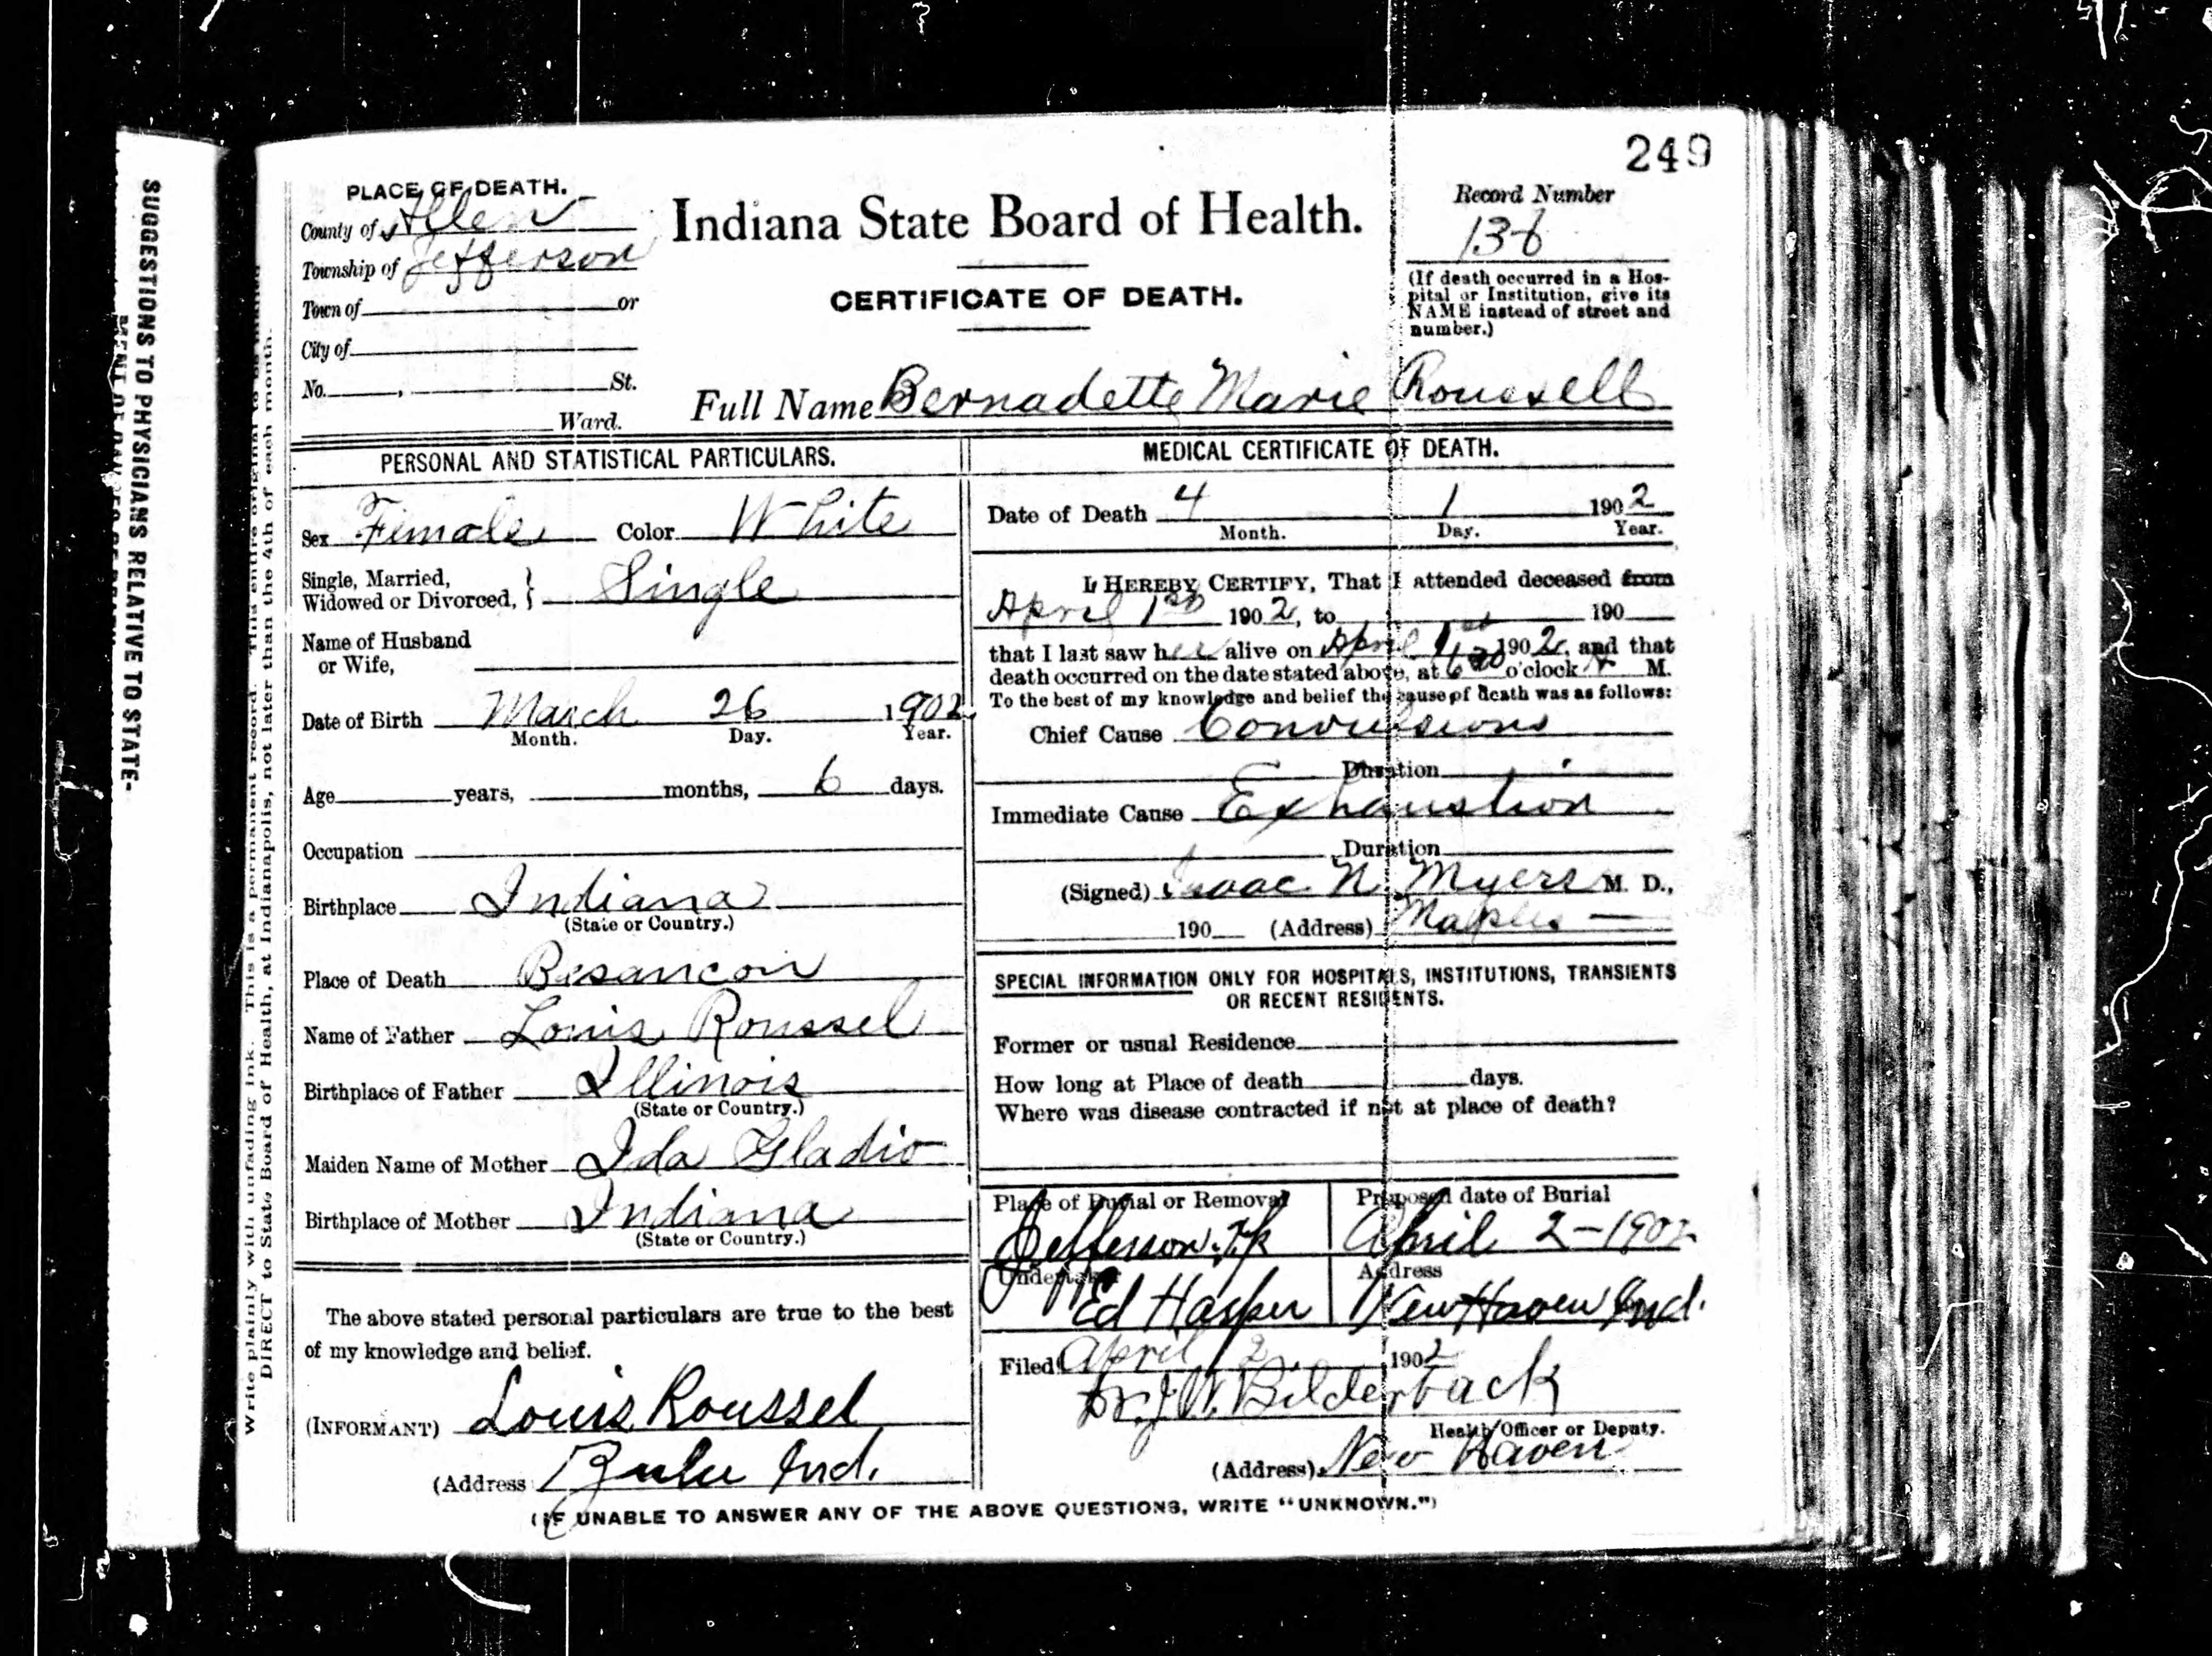 249
PLACE OF DEATH.
County of Allen
Township of Jefferson
Town of or
City of
No. , St.
Ward.
Indiana State Board of Health.
CERTIFICATE OF DEATH.
Record Number
136
(If death occurred in a Hos-
pital or Institution, give its
NAME instead of street and
number.)
Full Name Bernadette Marie Roussell
PERSONAL AND STATISTICAL PARTICULARS.
Sex Female Color White
Single, Married,
Widowed or Divorced, } Single
Name of Husband
or Wife,
Date of Birth March 26 1902
Month. Day. Year.
Age years, months, 6 days.
Occupation
Birthplace Indiana
(State or Country.)
Place of Death Besancon
Name of Father Louis Roussel
Birthplace of Father Illinois
(State or Country.)
Maiden Name of Mother Ida Gladio
Birthplace of Mother Indiana
(State or Country.)
The above stated personal particulars are true to the best
of my knowledge and belief.
(INFORMANT) Louis Roussel
(Address Zulu Ind.
MEDICAL CERTIFICATE OF DEATH.
Date of Death 4 1 1902
Month. Day. Year.
I HEREBY CERTIFY, That I attended deceased from
April 1st 1902, to 190
that I last saw her alive on April 1st 1902, and that
death occurred on the date stated above, at 6 o'clock M.
To the best of my knowledge and belief the cause of death was as follows:
Chief Cause Convulsions
Duration
Immediate Cause Exhaustion
Duration
(Signed) Isaac N. Myers M. D.,
190 (Address) Maples
SPECIAL INFORMATION ONLY FOR HOSPITALS, INSTITUTIONS, TRANSIENTS
OR RECENT RESIDENTS.
Former or usual Residence
How long at Place of death days.
Where was disease contracted if not at place of death?
Place of Burial or Removal
Jefferson Tp
Proposed date of Burial
April 2-1902
Undertaker
Ed Harper
Address
New Haven Ind.
Filed April 2 1902
Dr. J. W. Bilderback
Health Officer or Deputy.
(Address) New Haven
(IF UNABLE TO ANSWER ANY OF THE ABOVE QUESTIONS, WRITE "UNKNOWN.")
Write plainly with unfading ink. This is a permanent record. This entire original to be
DIRECT to State Board of Health, at Indianapolis, not later than the 4th of each month.
SUGGESTIONS TO PHYSICIANS RELATIVE TO STATE-